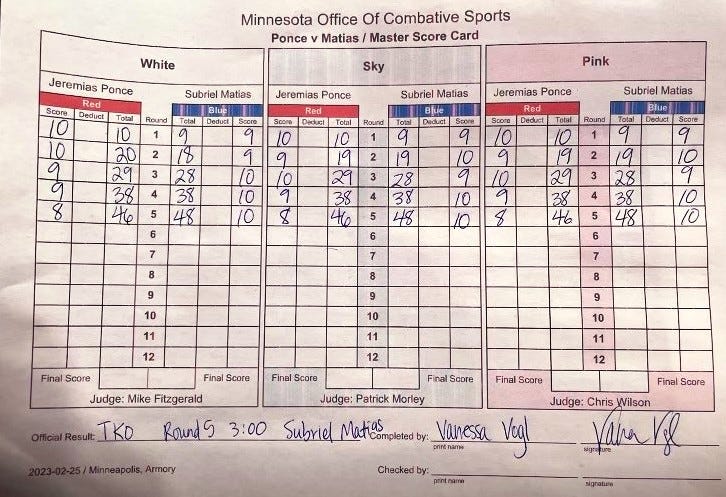 Minnesota Office Of Combative Sports
Ponce v Matias / Master Score Card
White Sky Pink
Jeremias Ponce Subriel Matias Jeremias Ponce Subriel Matias Jeremias Ponce Subriel Matias
Red Blue Red Blue Red Blue
Score Deduct Total Round Total Deduct Score Score Deduct Total Round Total Deduct Score Score Deduct Total Round Total Deduct Score
10 10 1 9 9 10 10 1 9 9 10 10 1 9 9
10 20 2 18 9 9 19 2 19 10 9 19 2 19 10
9 29 3 28 10 10 29 3 28 9 10 29 3 28 9
9 38 4 38 10 9 38 4 38 10 9 38 4 38 10
8 46 5 48 10 8 46 5 48 10 8 46 5 48 10
6 6 6
7 7 7
8 8 8
9 9 9
10 10 10
11 11 11
12 12 12
Final Score Final Score Final Score Final Score Final Score Final Score
Judge: Mike Fitzgerald Judge: Patrick Morley Judge: Chris Wilson
Official Result: TKO Round 5 3:00 Subriel Matias Completed by: Vanessa Vogl
print name signature
2023-02-25 / Minneapolis, Armory Checked by:
print name signature